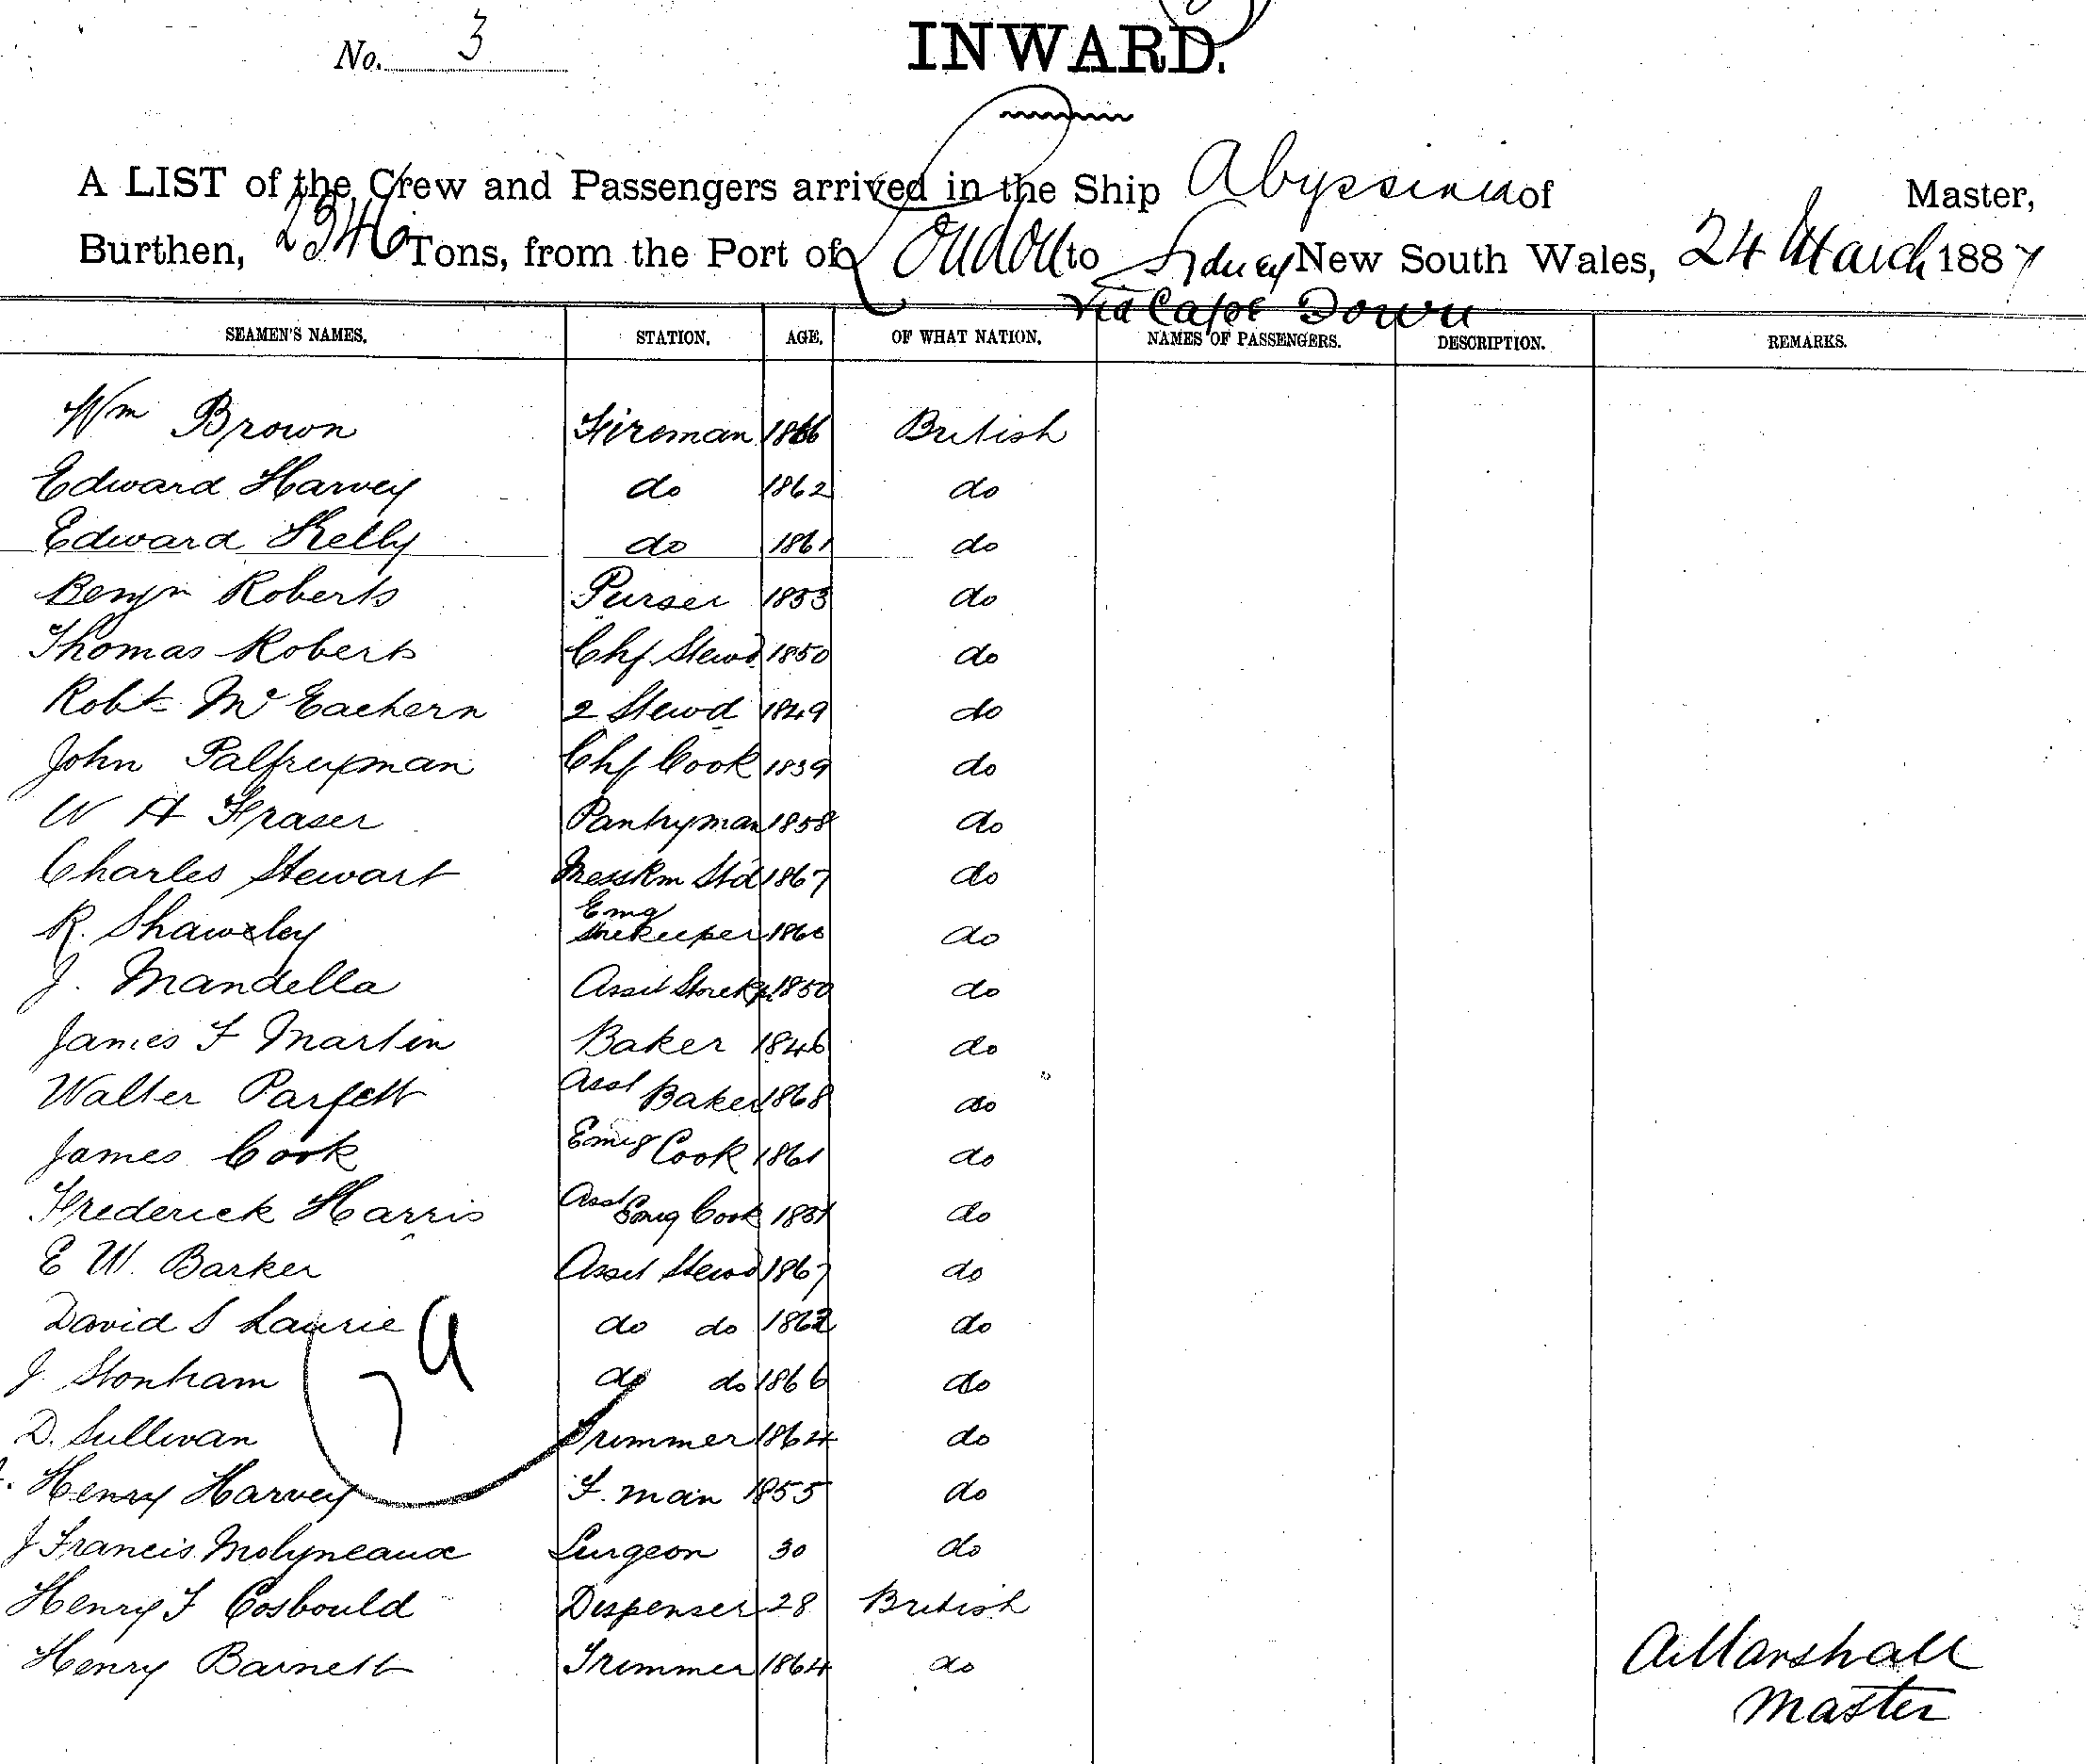 No. 3
INWARD.
A LIST of the Crew and Passengers arrived in the Ship Abyssinia of Master,
Burthen, 2346 Tons, from the Port of London to Sydney New South Wales, 24 March 1887
Via Cape Town
SEAMEN'S NAMES. STATION. AGE. OF WHAT NATION. NAMES OF PASSENGERS. DESCRIPTION. REMARKS.
Wm Brown Fireman 1866 British
Edward Harvey do 1862 do
Edward Kelly do 1861 do
Benjn Roberts Purser 1853 do
Thomas Roberts Chf Stewd 1850 do
Robt McEachern 2 Stewd 1849 do
John Palfreyman Chf Cook 1839 do
W H Fraser Pantryman 1858 do
Charles Stewart MessRm Std 1867 do
R. Shawsley Emg Storekeeper 1860 do
J. Mandella Asst Storekpr 1850 do
James F Martin Baker 1846 do
Walter Parfett Asst Baker 1868 do
James Cook Emig Cook 1861 do
Frederick Harris Asst Emig Cook do
E W. Barker Asst Stewd 1867 do
David S Laurie do do 1862 do
J Stonham do do 1866 do
D. Sullivan Trimmer 1864 do
Henry Harvey F. man 1855 do
J Francis Molyneaux Surgeon 30 do
Henry F Cosbould Dispenser 28 British
Henry Barnett Trimmer 1864 do
79
A Marshall
Master